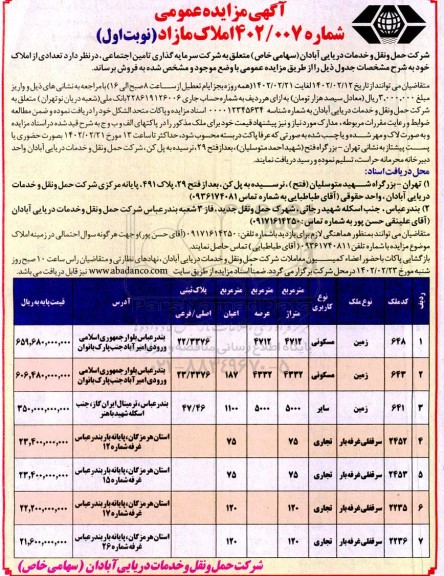 آگهی مزایده عمومی
شماره ۴۰۲/۰۰۷ املاک مازاد (نوبت اول)
شرکت حمل ونقل و خدمات دریایی آبادان (سهامی خاص) متعلق به شرکت سرمایه گذاری تامین اجتماعی، در نظر دارد تعدادی از املاک
خود به شرح مشخصات جدول ذیل را از طریق مزایده عمومی با وضع موجود و مشخص شده به فروش برساند.
متقاضیان می توانند از تاریخ ۱۴۰۲/۰۲/۱۲ لغایت ۱۴۰۲/۰۲/۲۱ (همه روزه بجز ایام تعطیل از ساعت ۸ صبح الی ۱۶) با مراجعه به نشانی های ذیل و واریز
مبلغ ۳,۰۰۰,۰۰۰ ریال (معادل سیصد هزار تومان) به ازای هر ردیف به شماره حساب جاری
شرکت حمل ونقل و خدمات دریایی آبادان به شماره شناسه
ضوابط و شرایط و مقررات مربوطه، مدارک مورد نیاز و نیز پیشنهاد قیمت خود برای ملک مذکور را در پاکتهای الف و ب و ج به شرح قید شده در اسناد مزایده
و به صورت لاک و مهر شده
پست پیشتاز به نشانی تهران - بزرگراه فتح (شهید احمد متوسلیان) بعد از فتح ۲۹، نرسیده به پل کن، شرکت حمل و نقل و خدمات دریایی آبادان واحد
دبیرخانه محرمانه حراست، تسلیم نموده و رسید دریافت نمایند.
محل دریافت اسناد:
۱) تهران - بزرگراه شهید متوسلیان (فتح)، نرسیده به پل کن، بعد از فتح ۲۹، پلاک ۴۹۱، پایانه مرکزی شرکت حمل ونقل و خدمات
دریایی آبادان، واحد حقوقی (آقای طباطبایی به شماره تماس ۰۹۳۶۱۷۴۰۸۱)
۲) بندرعباس، جنب اسکله شهید رجائی، شهرک حمل ونقل جدید، فاز ۳ شعبه بندرعباس شرکت حمل ونقل و خدمات دریایی آبادان
(آقای علینقی حسن پور به شماره تماس: ۰۹۱۷۱۶۱۴۲۵۰)
متقاضیان می توانند بمنظور هماهنگی لازم برای بازدید با شماره تلفن: ۰۹۱۷۱۶۱۴۲۵۰ (آقای حسن پور) و جهت هر گونه سوال احتمالی در زمینه املاک
موضوع مزایده با شماره تلفن ۰۹۳۶۱۷۴۰۸۱۱ (آقای طباطبایی) تماس حاصل نمایند.
بازگشایی پاکات با حضور اعضاء کمیسیون معاملات شرکت حمل ونقل و خدمات دریایی آبادان، نهادهای نظارتی و متقاضیان راس ساعت ۱۰ صبح روز
شنبه مورخ ۱۴۰۲/۰۲/۲۳ در محل شرکت برگزار می گردد. ضمنا اسناد مزایده از طریق سایت www.abadanco.com نیز قابل دریافت می باشد.
ردیف کد ملک نوع ملک نوع کاربری مترمربع متراژ مترمربع عرصه مترمربع اعیان پلاک ثبتی اصلی / فرعی آدرس قیمت پایه به ریال
۱ ۶۴۸ زمین مسکونی ۴۷۱۲ ۴۷۱۲ ۲۲/۳۳۷۶ بندرعباس بلوار جمهوری اسلامی ورودی امیرآباد جنب پارک بانوان ۶۵۹,۶۸۰,۰۰۰,۰۰۰
۲ ۶۴۳ زمین مسکونی ۴۳۳۲ ۴۳۳۲ ۱۸۷ ۲۳/۳۳۷۶ بندرعباس بلوار جمهوری اسلامی ورودی امیرآباد جنب پارک بانوان ۶۰۶,۴۸۰,۰۰۰,۰۰۰
۳ ۶۴۱ زمین سایر ۵۰۰۰ ۵۰۰۰ ۱۱۰۰ ۴۷/۴۶ بندرعباس، ترمینال ایران گاز، جنب اسکله شهید باهنر ۳۵۰,۰۰۰,۰۰۰,۰۰۰
۴ ۲۴۵۲ سرقفلی غرفه بار تجاری ۷۵ ۷۵ استان هرمزگان، پایانه بار بندرعباس غرفه شماره ۱۲ ۲۳,۴۰۰,۰۰۰,۰۰۰
۵ ۲۴۵۳ سرقفلی غرفه بار تجاری ۷۵ ۷۵ استان هرمزگان، پایانه بار بندرعباس غرفه شماره ۱۵ ۲۳,۴۰۰,۰۰۰,۰۰۰
۶ ۲۲۳۵ سرقفلی غرفه بار تجاری ۱۲۰ ۱۲۰ استان هرمزگان، پایانه بار بندرعباس غرفه شماره ۱۷ ۲۲,۲۰۰,۰۰۰,۰۰۰
۷ ۲۲۳۶ سرقفلی غرفه بار تجاری ۱۲۰ ۱۲۰ استان هرمزگان، پایانه بار بندرعباس غرفه شماره ۲۶ ۲۱,۶۰۰,۰۰۰,۰۰۰
شرکت حمل ونقل و خدمات دریایی آبادان (سهامی خاص)